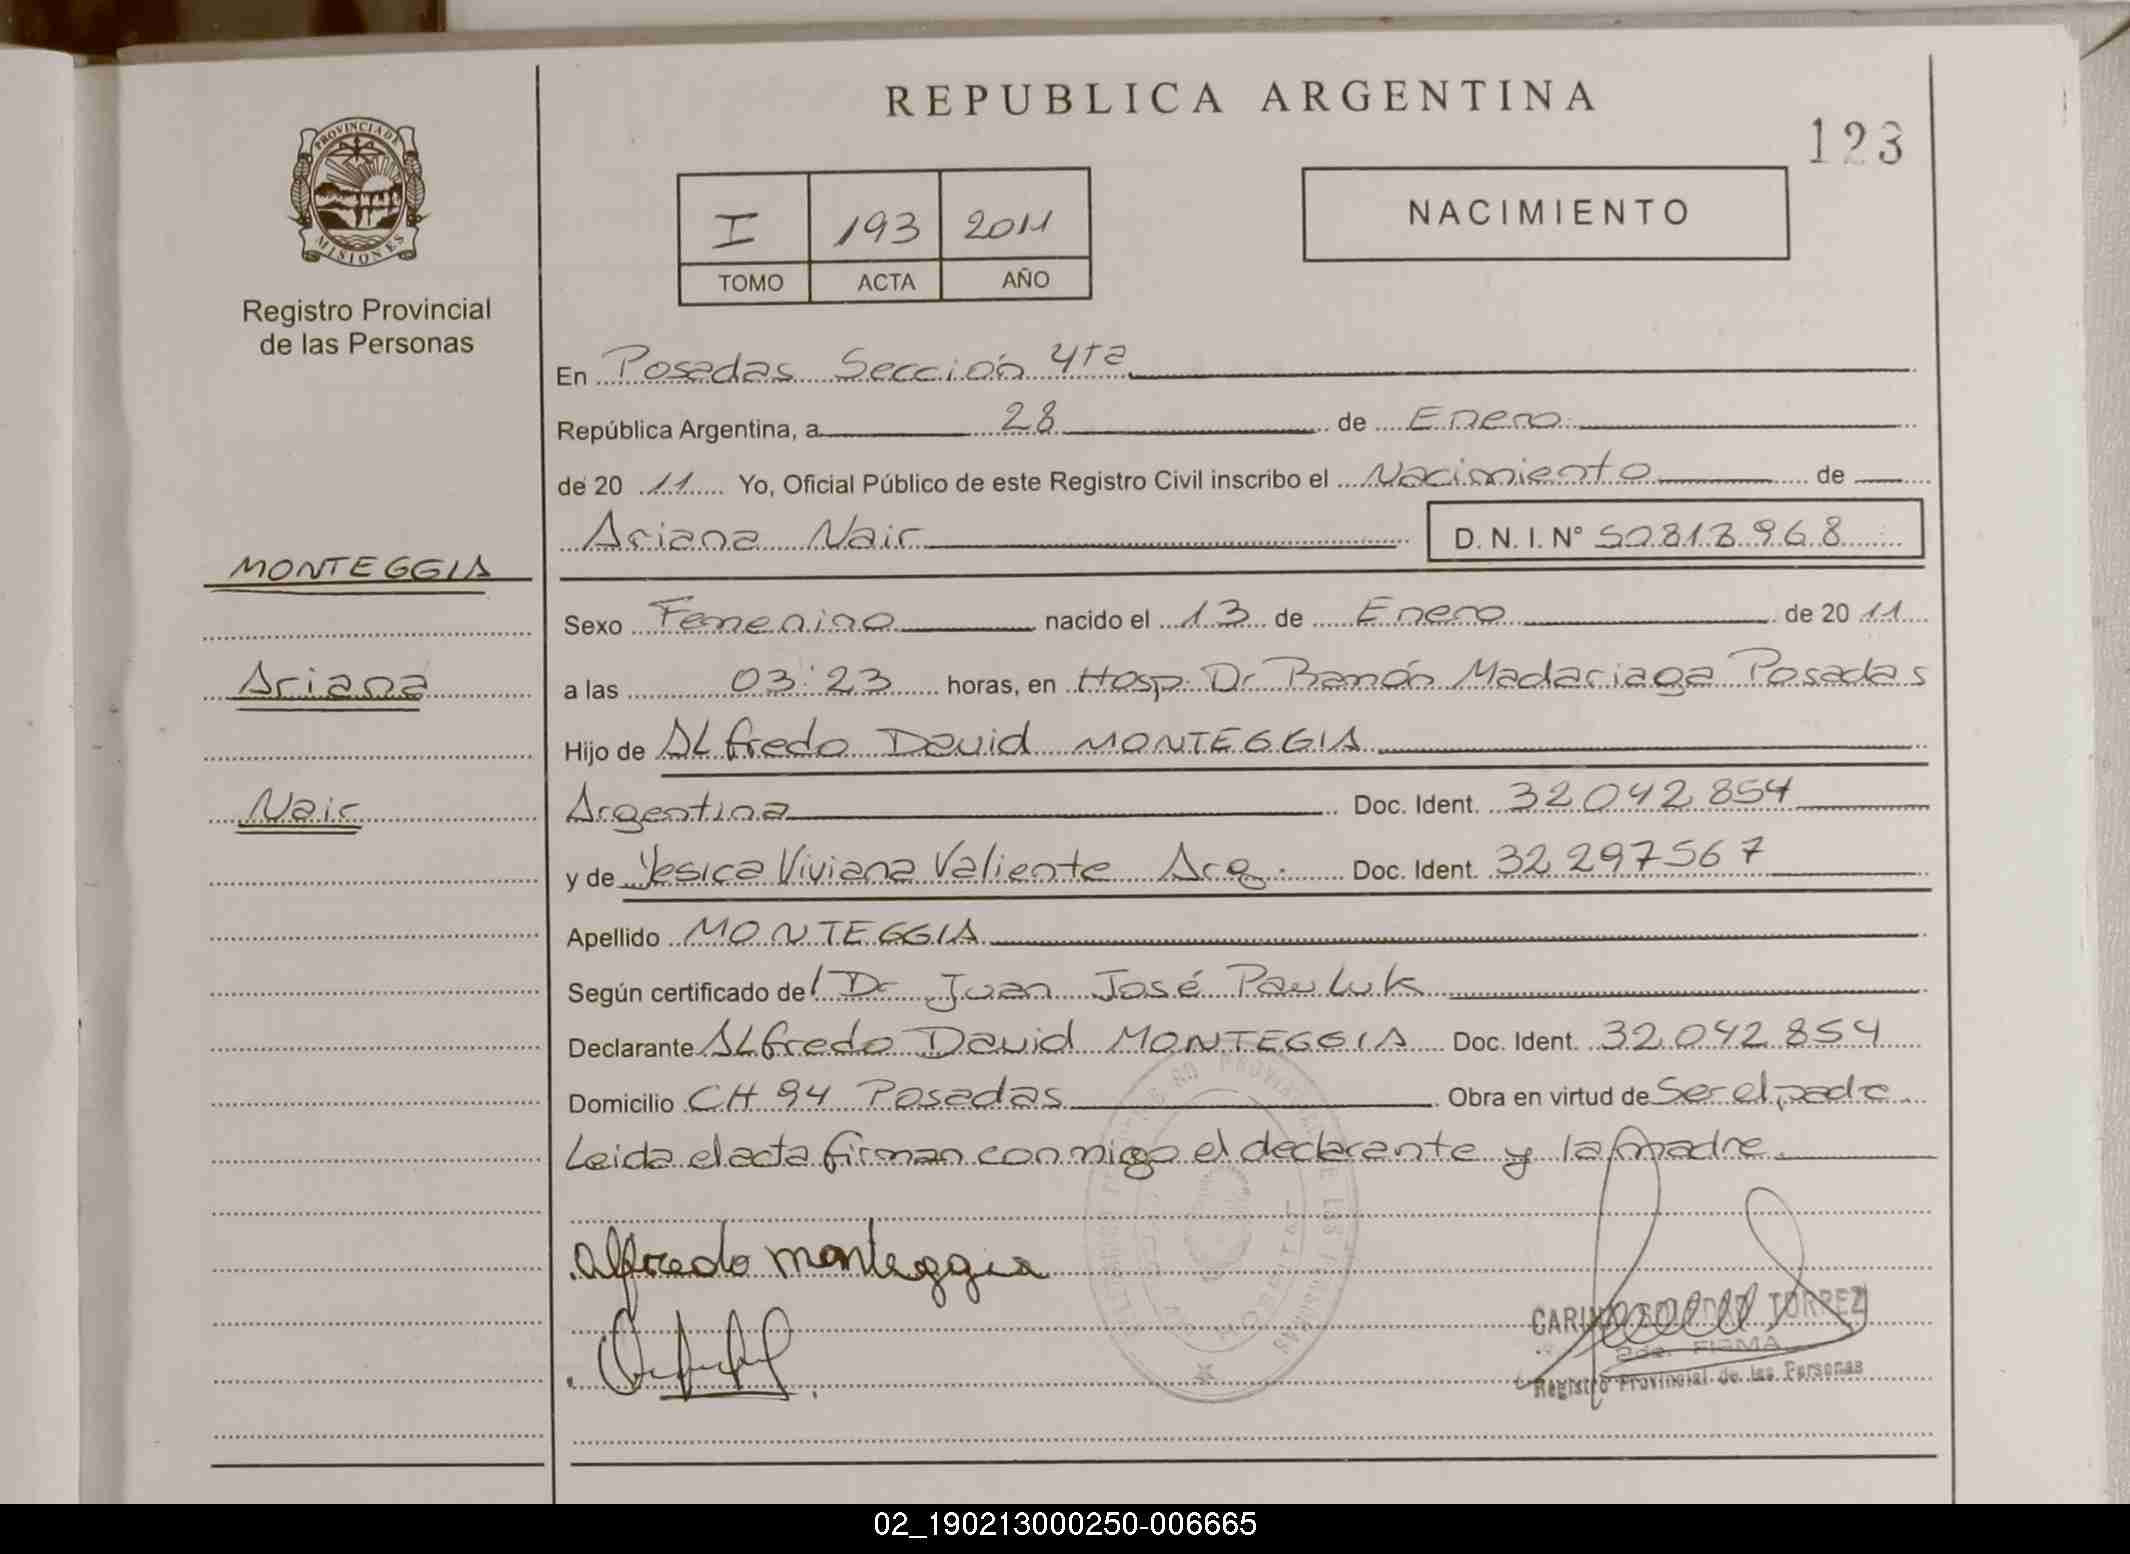 REPUBLICA ARGENTINA
123
PROVINCIA DE
MISIONES
Registro Provincial
de las Personas
I 193 2011
TOMO ACTA AÑO
NACIMIENTO
En Posadas Sección 4ta
República Argentina, a 28 de Enero
de 20 11 Yo, Oficial Público de este Registro Civil inscribo el Nacimiento de
Ariana Nair D. N. I. N° 50.813.968
MONTEGGIA
Ariana
Nair
Sexo Femenino nacido el 13 de Enero de 20 11
a las 03:23 horas, en Hosp. Dr Ramón Madariaga Posadas
Hijo de Alfredo David MONTEGGIA
Argentina Doc. Ident. 32.042.854
y de Yesica Viviana Valiente Arg. Doc. Ident. 32.297.567
Apellido MONTEGGIA
Según certificado del Dr Juan José Pauluk
Declarante Alfredo David MONTEGGIA Doc. Ident. 32.042.854
Domicilio CH 94 Posadas Obra en virtud de Ser el padre
Leida el acta firman conmigo el declarante y la madre
Alfredo monteggia
TORREZ
2da. FIRMA
Registro Provincial de las Personas
02_190213000250-006665